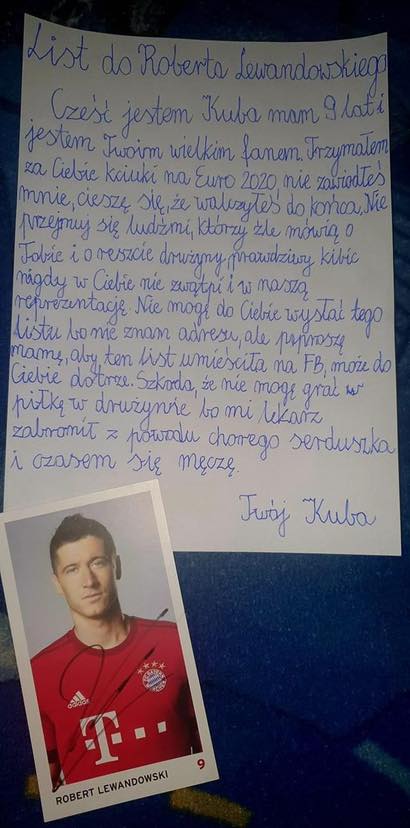 List do Roberta Lewandowskiego
Cześć jestem Kuba mam 9 lat i
jestem Twoim wielkim fanem. Trzymałem
za Ciebie kciuki na Euro 2020, nie zawiodłeś
mnie, cieszę się, że walczyłeś do końca. Nie
przejmuj się ludźmi, którzy źle mówią o
Tobie i o reszcie drużyny, prawdziwy kibic
nigdy w Ciebie nie zwątpi i w naszą
reprezentację. Nie mogę do Ciebie wysłać tego
listu bo nie znam adresu, ale poproszę
mamę, aby ten list umieściła na FB, może do
Ciebie dotrze. Szkoda, że nie mogę grać w
piłkę w drużynie bo mi lekarz
zabronił z powodu chorego serduszka
i czasem się męczę.
Twój Kuba
adidas
T
ROBERT LEWANDOWSKI
9